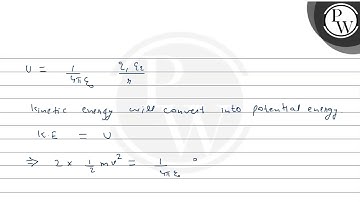 P
W
U = 1/4πε₀ q₁ q₂/r
Kinetic energy will convert into potential energy
K.E = U
⇒ 2 × 1/2 mv² = 1/4πε₀